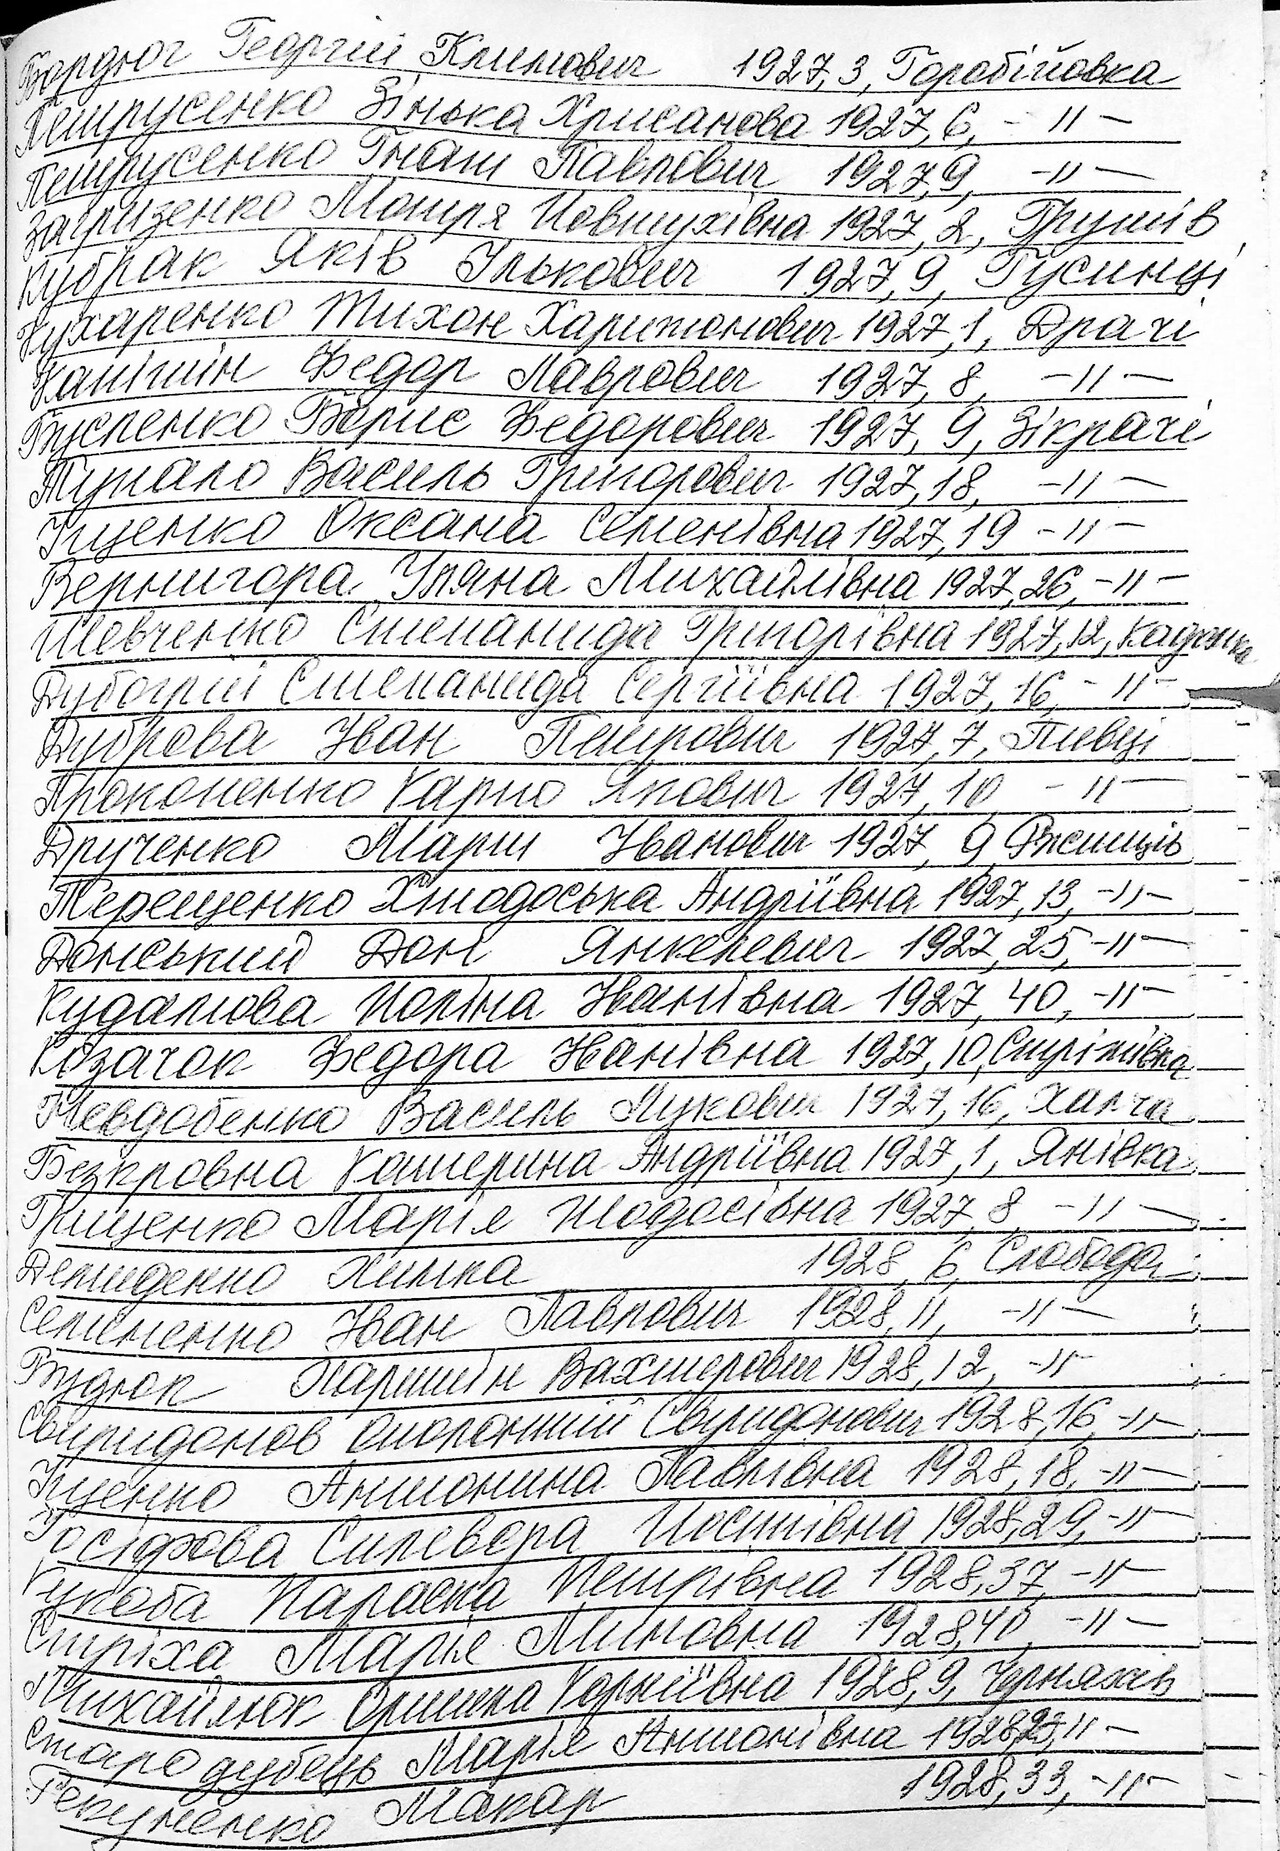 Бардюг Георгій Климович 1927, 3, Горобіївка
Петрусенко Зінька Хрисанова 1927, 6, -"-
Петрусенко Гнат Павлович 1927, 9, -"-
Загризенко Мотря Йовтухівна 1927, 2, Грушів
Кубрак Яків Ількович 1927, 9, Гусинці
Кухаренко Тихон Харитонович 1927, 1, Драчі
Ханішін Федор Лаврович 1927, 8, -"-
Бусленко Борис Федорович 1927, 9, Зікрачі
Тушало Василь Григорович 1927, 18, -"-
Іщенко Оксана Семенівна 1927, 19 -"-
Вернигора Уляна Михайлівна 1927, 26, -"-
Шевченко Степанида Григорівна 1927, 12, Кадомка
Дубогрій Степанида Сергіївна 1927, 16, -"-
Дуброва Іван Петрович 1927, 7, Пивці
Прокопенко Карпо Якович 1927, 10 -"-
Друченко Марш Іванович 1927, 9, Ржищів
Терещенко Хтодоська Андріївна 1927, 13, -"-
Донський Дон Янкелевич 1927, 25, -"-
Кудашова Поліна Іванівна 1927, 40, -"-
Козачок Федора Іванівна 1927, 10, Стрітівка
Невдобенко Василь Лукович 1927, 16, Халча
Безкровна Катерина Андріївна 1927, 1, Янівка
Грищенко Марія Тодосівна 1927, 8, -"-
Демиденко Химка 1928, 6, Слобода
Семененко Іван Павлович 1928, 11, -"-
Будюк Вахтерович 1928, 12, -"-
Свиридонов Свиридонович 1928, 16, -"-
Іщенко Антонина Павлівна 1928, 18, -"-
Йосіфова Силевера Йосипівна 1928, 29, -"-
Кукоба Параска Петрівна 1928, 37, -"-
Стріха Марія Миновна 1928, 40, -"-
Михайлюк Оришка Корніївна 1928, 9, Черняхів
Стародубець Марія Антонівна 1928, 23, "-
Рекуненко Макар 1928, 33, -"-